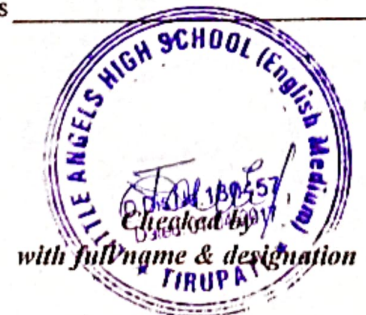 s
LITTLE ANGELS HIGH SCHOOL (English Medium)
TIRUPATI
Checked by
with full name & designation